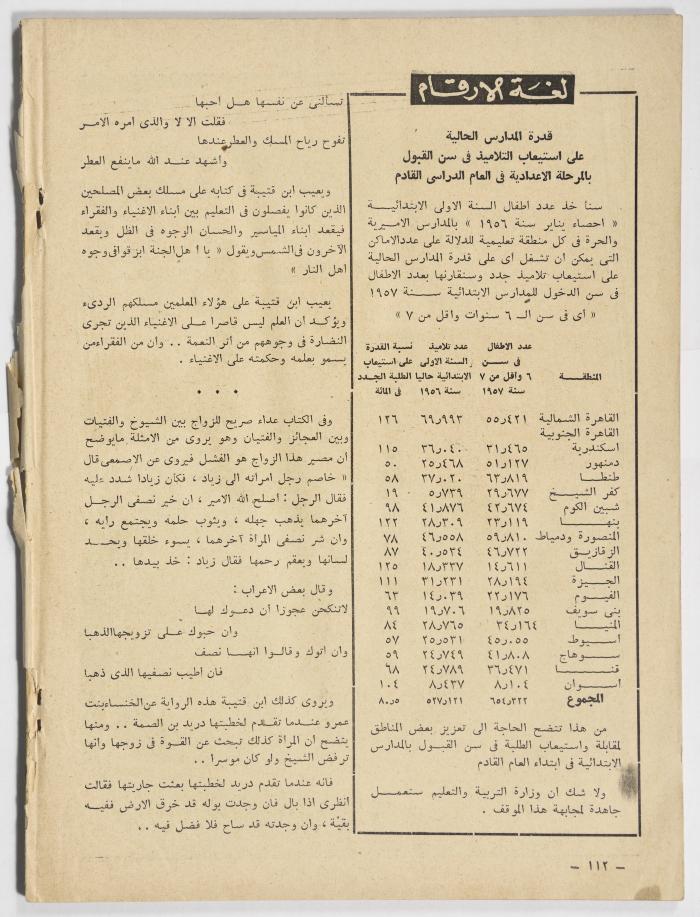 لغة الارقام
قدرة المدارس الحالية
على استيعاب التلاميذ فى سن القبول
بالمرحلة الاعدادية فى العام الدراسى القادم
سنأ خذ عدد اطفال السنة الاولى الابتدائية
« احصاء يناير سنة ١٩٥٦ » بالمدارس الاميرية
والحرة فى كل منطقة تعليمية للدلالة على عدد الاماكن
التى يمكن ان تشغل اى على قدرة المدارس الحالية
على استيعاب تلاميذ جدد وسنقارنها بعدد الاطفال
فى سن الدخول للمدارس الابتدائية سنة ١٩٥٧
« أى فى سن الـ ٦ سنوات واقل من ٧ »
المنطقة | عدد الاطفال فى سن ٦ وأقل من ٧ سنة ١٩٥٧ | عدد تلاميذ السنة الاولى الابتدائية حاليا سنة ١٩٥٦ | نسبة القدرة على استيعاب الطلبة الجدد فى المائة
القاهرة الشمالية ٥٥٫٤٢١ ٦٩٫٩٩٣ ١٢٦
القاهرة الجنوبية
اسكندرية ٣١٫٤٦٥ ٣٦٫٠٤٠ ١١٥
دمنهور ٥١٫١٢٧ ٢٥٫٤٦٨ ٥٠
طنطا ٦٣٫٨١٩ ٣٧٫٠٢٠ ٥٨
كفر الشيخ ٢٩٫٦٧٧ ٥٫٧٣٩ ١٩
شبين الكوم ٤٢٫٦٧٤ ٤١٫٨٧٦ ٩٨
بنها ٢٣٫١١٩ ٢٨٫٣٠٩ ١٢٢
المنصورة ودمياط ٥٩٫٨١٠ ٤٦٫٥٥٨ ٧٨
الزقازيق ٤٦٫٧٢٢ ٤٠٫٥٣٤ ٨٧
القنال ١٤٫٦١١ ١٨٫٣٣٧ ١٢٥
الجيزة ٢٨٫١٩٤ ٣١٫٢٣١ ١١١
الفيوم ٢٢٫١٧٦ ١٤٫٠٣٩ ٦٣
بنى سويف ١٩٫٨٢٥ ١٩٫٧٠٦ ٩٩
المنيا ٣٤٫١٦٤ ٢٨٫٧٦٥ ٨٤
أسيوط ٤٥٫٠٥٥ ٢٥٫٥٣١ ٥٧
سوهاج ٤١٫٨٠٨ ٢٤٫٧٤٩ ٥٩
قنا ٣٦٫٤٧١ ٢٤٫٧٨٩ ٦٨
أسوان ٨٫١٠٤ ٨٫٤٣٧ ١٠٤
المجموع ٦٥٤٫٣٢٢ ٥٢٧٫١٢١ ٨٠٫٥
من هذا تتضح الحاجة الى تعزيز بعض المناطق
لمقابلة واستيعاب الطلبة فى سن القبول بالمدارس
الابتدائية فى ابتداء العام القادم
ولا شك ان وزارة التربية والتعليم ستعمل
جاهدة لمجابهة هذا الموقف .
تسألنى عن نفسها هل احبها
فقلت الا لا والذى امره الامر
تفوح رياح المسك والعطر عندها
واشهد عند الله ماينفع العطر
ويعيب ابن قتيبة فى كتابه على مسلك بعض المصلحين
الذين كانوا يفصلون فى التعليم بين أبناء الاغنياء والفقراء
فيقعد أبناء المياسير والحسان الوجوه فى الظل ويقعد
الآخرون فى الشمس ويقول « يا أهل الجنة ابزقوا فى وجوه
اهل النار »
يعيب ابن قتيبة على هؤلاء المعلمين مسلكهم الردىء
ويؤكد أن العلم ليس قاصرا على الاغنياء الذين تجرى
النضارة فى وجوههم من أثر النعمة .. وأن من الفقراء من
يسمو بعلمه وحكمته على الاغنياء .
• • •
وفى الكتاب عداء صريح للزواج بين الشيوخ والفتيات
وبين العجائز والفتيان وهو يروى من الامثلة مايوضح
أن مصير هذا الزواج هو الفشل فيروى عن الاصمعى قال
« خاصم رجل امرأته الى زياد ، فكان زيادا شدد عليه
فقال الرجل : أصلح الله الامير ، ان خير نصفى الرجل
آخرهما يذهب جهله ، ويثوب حلمه ويجتمع رايه ،
وان شر نصفى المرأة آخرهما ، يسوء خلقها ويحد
لسانها ويعقم رحمها فقال زياد : خذ بيدها ..
وقال بعض الاعراب :
لاتنكحن عجوزا أن دعوك لها
وان حبوك على تزويجها الذهبا
وان اتوك وقالوا انها نصف
فان اطيب نصفيها الذى ذهبا
ويروى كذلك ابن قتيبة هذه الرواية عن الخنساء بنت
عمرو عندما تقدم لخطبتها دريد بن الصمة .. ومنها
يتضح ان المرأة كذلك تبحث عن القوة فى زوجها وانها
ترفض الشيخ ولو كان موسرا ..
فانه عندما تقدم دريد لخطبتها بعثت جاريتها فقالت
انظرى اذا بال فان وجدت بوله قد خرق الارض ففيه
بقية ، وان وجدته قد ساح فلا فضل فيه ..
– ١١٢ –